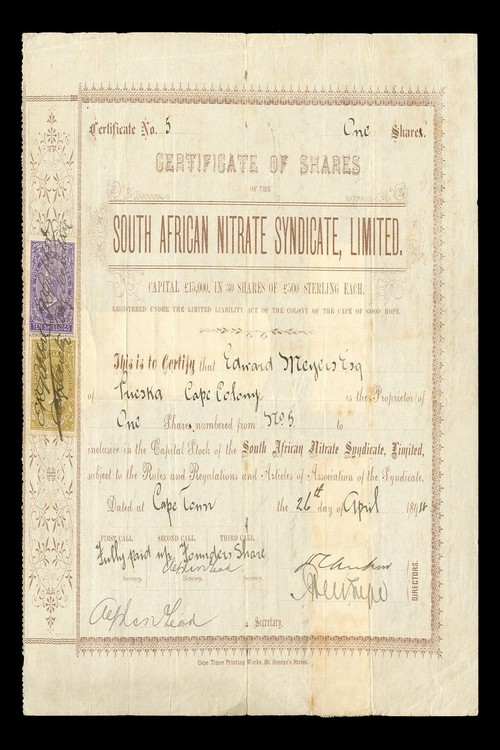 Certificate No. 5 One Shares.
CERTIFICATE OF SHARES
OF THE
SOUTH AFRICAN NITRATE SYNDICATE, LIMITED.
CAPITAL £15,000, IN 30 SHARES OF £500 STERLING EACH.
REGISTERED UNDER THE LIMITED LIABILITY ACT OF THE COLONY OF THE CAPE OF GOOD HOPE.
This is to Certify that Edward Meyers Esq
of Prieska Cape Colony is the Proprietor of
One Shares, numbered from No 5 to
inclusive in the Capital Stock of the South African Nitrate Syndicate, Limited,
subject to the Rules and Regulations and Articles of Association of the Syndicate.
Dated at Cape Town the 26th day of April 189
FIRST CALL. SECOND CALL. THIRD CALL.
Fully paid up Founders Share
Secretary. Secretary. Secretary.
DIRECTORS.
Secretary.
Cape Times Printing Works, St. George's Street.